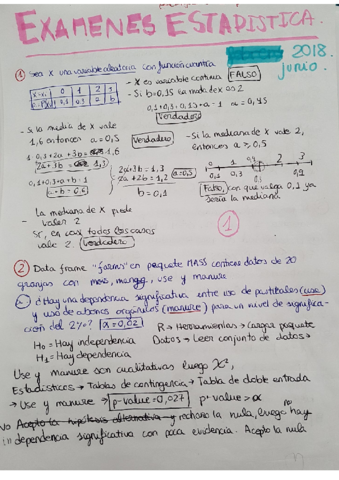 EXAMENES ESTADISTICA.
2018.
junio.
① Sea X una variable aleatoria con función cuantía
x=xi 0 1 2 3
0,1 0,3 a b
- X es variable continua FALSO
- Si b=0,15 la moda de x es 2
0,1+0,3+0,15+a=1 a=0,45
Verdadero
- Si la media de X vale
1,6 entonces a=0,5 Verdadero
1·0,3+2a+3b=1,6
2a+3b=1,3
0,1+0,3+a+b=1
a+b=0,6
2a+3b=1,3
2a+2b=1,2
b=0,1
a=0,5
- Si la mediana de X vale 2,
entonces a≥0,5
0 1 2 3
0,1 0,3 0,1
Falso, con que valga 0,1 ya
sería la mediana
- La mediana de X puede
valer 2
Sí, en casi todos los casos
vale 2. Verdadero
①
② Data frame "farms" en paquete MASS contiene datos de 20
granjas con mois, manag, use y manure
¿Hay una dependencia significativa entre uso de pastizales (use)
y uso de abonos orgánicos (manure) para un nivel de significa-
ción del 2%? α=0,02
R → Herramientas → Cargar paquete
H₀ = Hay independencia Datos → Leer conjunto de datos →
H₁ = Hay dependencia
Use y manure son cualitativas luego X²,
Estadísticos → Tablas de contingencia → Tabla de doble entrada
→ Use y manure → p-value=0,027 p-value > α
No Acepto la hipótesis alternativa y rechazo la nula, luego no hay
dependencia significativa con poca evidencia. Acepto la nula